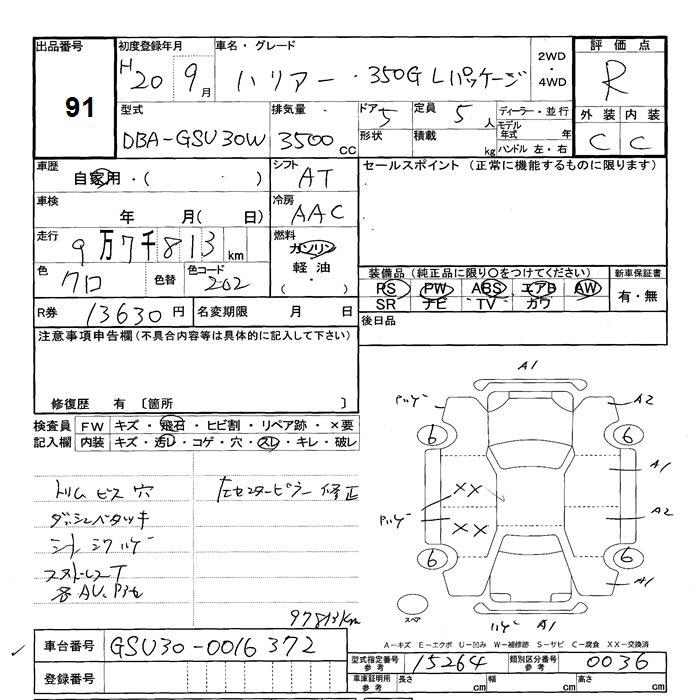 出品番号
91
初度登録年月
H 20 9月
車名・グレード
ハリアー・350G Lパッケージ
2WD
・
4WD
評価点
R
外装 内装
C C
型式
DBA-GSU30W
排気量
3500cc
ドア 5
形状
定員 5人
積載 kg
ディーラー・並行
モデル年式 年
ハンドル 左・右
車歴
自家用・( ・ )
シフト
AT
セールスポイント (正常に機能するものに限ります)
車検
年 月( 日)
冷房
AAC
走行
9万7千813km
燃料
ガソリン
軽油
( ・ )
色
クロ
色替
色コード
202
装備品(純正品に限り○をつけてください)
PS PW ABS エアB AW
SR ナビ TV カワ
新車保証書
有・無
R券 13630円
名変期限 月 日
後日品
注意事項申告欄(不具合内容等は具体的に記入して下さい)
修復歴 有 〔箇所 〕
検査員記入欄
FW キズ・飛石・ヒビ割・リペア跡・×要
内装 キズ・汚レ・コゲ・穴・スレ・キレ・破レ
トリム ビス 穴
左センターピラー 修正
ダッシュベタツキ
シート シワ ハゲ
97813km
A1
ハゲ
A2
6 6
A1
XX
ハゲ
A2
XX
6 6
A1
スペア
ハゲ A1
A-キズ E-エクボ U-凹み W-補修跡 S-サビ C-腐食 XX-交換済
車台番号 GSU30-0016372
登録番号
型式指定番号 参考 15264
類別区分番号 参考 0036
車庫証明用 参考
長さ cm 幅 cm 高さ cm